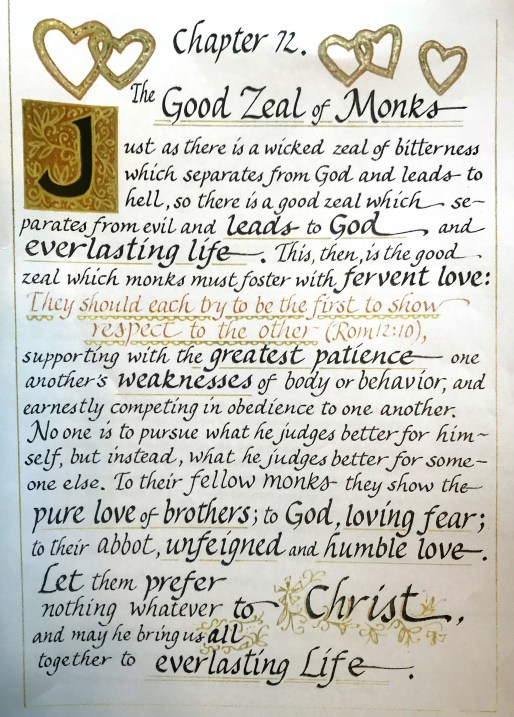 Chapter 72.
The Good Zeal of Monks
Just as there is a wicked zeal of bitterness
which separates from God and leads to
hell, so there is a good zeal which se-
parates from evil and leads to God and
everlasting life. This, then, is the good
zeal which monks must foster with fervent love:
They should each try to be the first to show
respect to the other (Rom 12:10),
supporting with the greatest patience one
another's weaknesses of body or behavior, and
earnestly competing in obedience to one another.
No one is to pursue what he judges better for him-
self, but instead, what he judges better for some-
one else. To their fellow monks they show the
pure love of brothers; to God, loving fear;
to their abbot, unfeigned and humble love.
Let them prefer
nothing whatever to Christ,
and may he bring us all
together to everlasting Life.